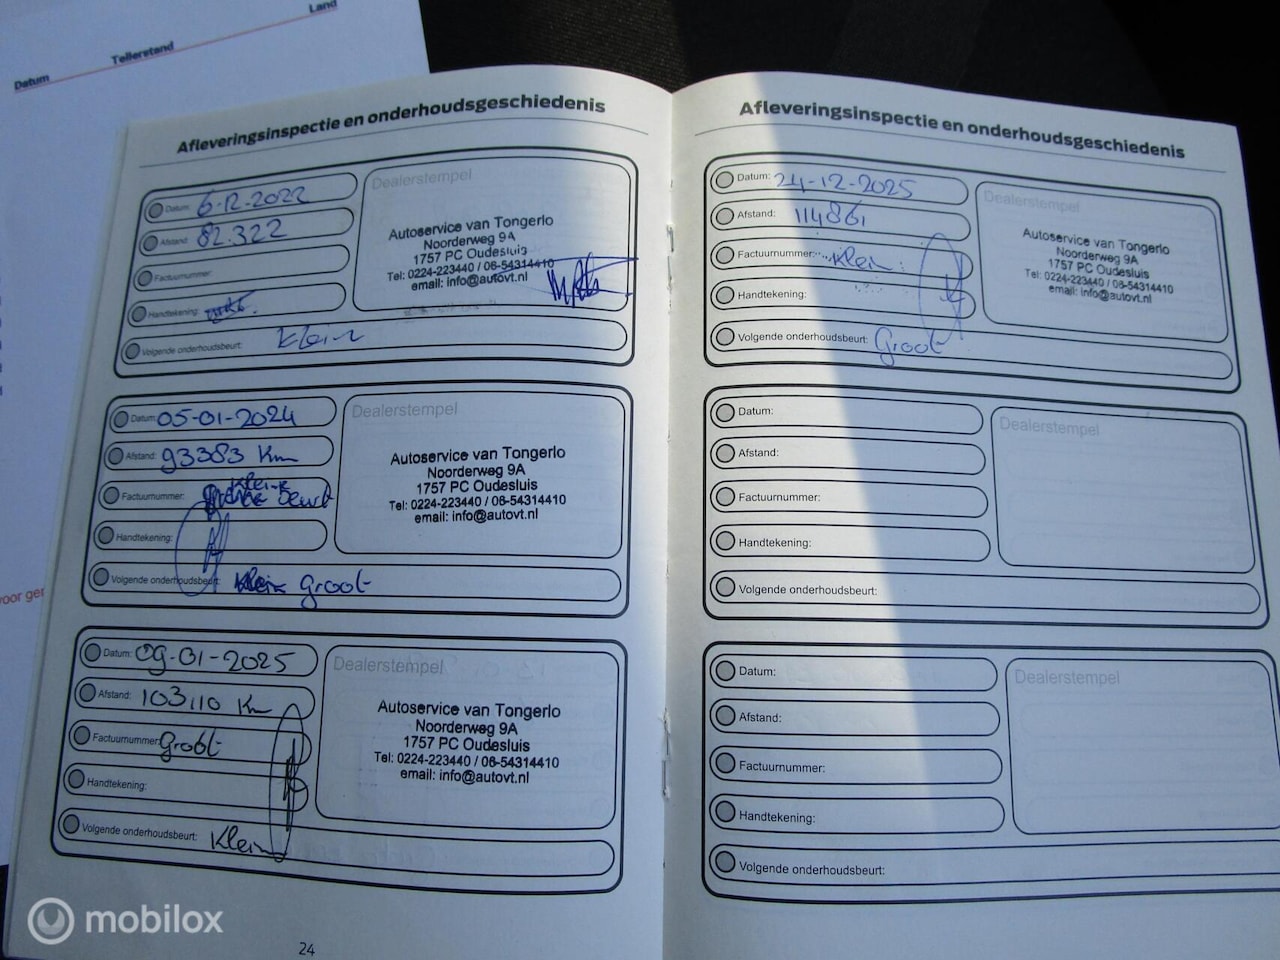 Datum
Tellerstand
Land
voor ger
Afleveringsinspectie en onderhoudsgeschiedenis
Datum: 6-12-2022
Afstand: 82.322
Factuurnummer:
Handtekening:
Volgende onderhoudsbeurt: Klein
Dealerstempel
Autoservice van Tongerlo
Noorderweg 9A
1757 PC Oudesluis
Tel: 0224-223440 / 06-54314410
email: info@autovt.nl
Datum: 05-01-2024
Afstand: 93383 Km
Factuurnummer: Kleine Beurt
Handtekening:
Volgende onderhoudsbeurt: Groot
Dealerstempel
Autoservice van Tongerlo
Noorderweg 9A
1757 PC Oudesluis
Tel: 0224-223440 / 06-54314410
email: info@autovt.nl
Datum: 09-01-2025
Afstand: 103110 Km
Factuurnummer: Groot
Handtekening:
Volgende onderhoudsbeurt: Klein
Dealerstempel
Autoservice van Tongerlo
Noorderweg 9A
1757 PC Oudesluis
Tel: 0224-223440 / 06-54314410
email: info@autovt.nl
24
Afleveringsinspectie en onderhoudsgeschiedenis
Datum: 24-12-2025
Afstand: 114861
Factuurnummer: Klein
Handtekening:
Volgende onderhoudsbeurt: Groot
Dealerstempel
Autoservice van Tongerlo
Noorderweg 9A
1757 PC Oudesluis
Tel: 0224-223440 / 06-54314410
email: info@autovt.nl
Datum:
Afstand:
Factuurnummer:
Handtekening:
Volgende onderhoudsbeurt:
Dealerstempel
Datum:
Afstand:
Factuurnummer:
Handtekening:
Volgende onderhoudsbeurt:
Dealerstempel
mobilox